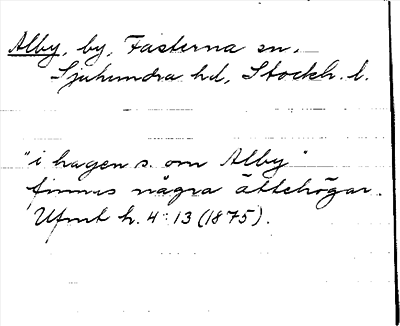 Alby, by, Fasterna sn,
Sjuhundra hd, Stockh. l.
"i hagen s. om Alby"
finnas några ättehögar.
Ufmt h. 4: 13 (1875).